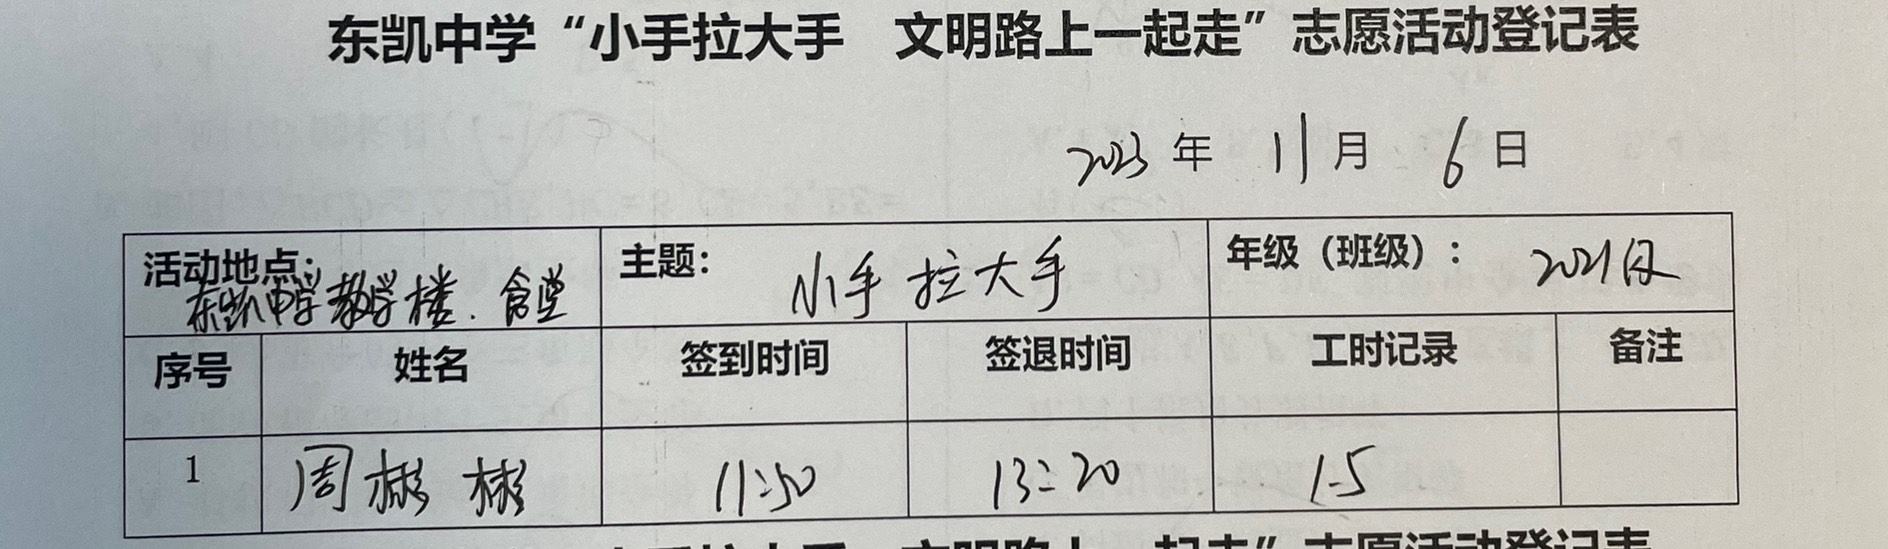 东凯中学“小手拉大手 文明路上一起走”志愿活动登记表
2023 年 11 月 6 日
活动地点: 东凯中学教学楼、食堂
主题: 小手拉大手
年级（班级）: 2021级
序号 姓名 签到时间 签退时间 工时记录 备注
1 周彬彬 11:50 13:20 1.5
小手拉大手 文明路上一起走”志愿活动登记表